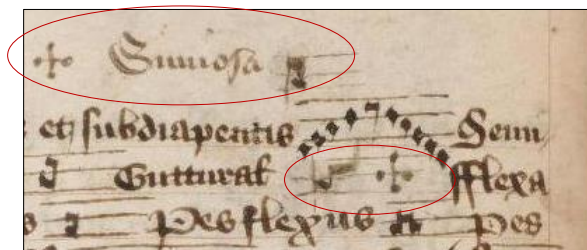 Sinuosa
et subdiapentis Semi
Guttural fflexa
Pes flexus Pes